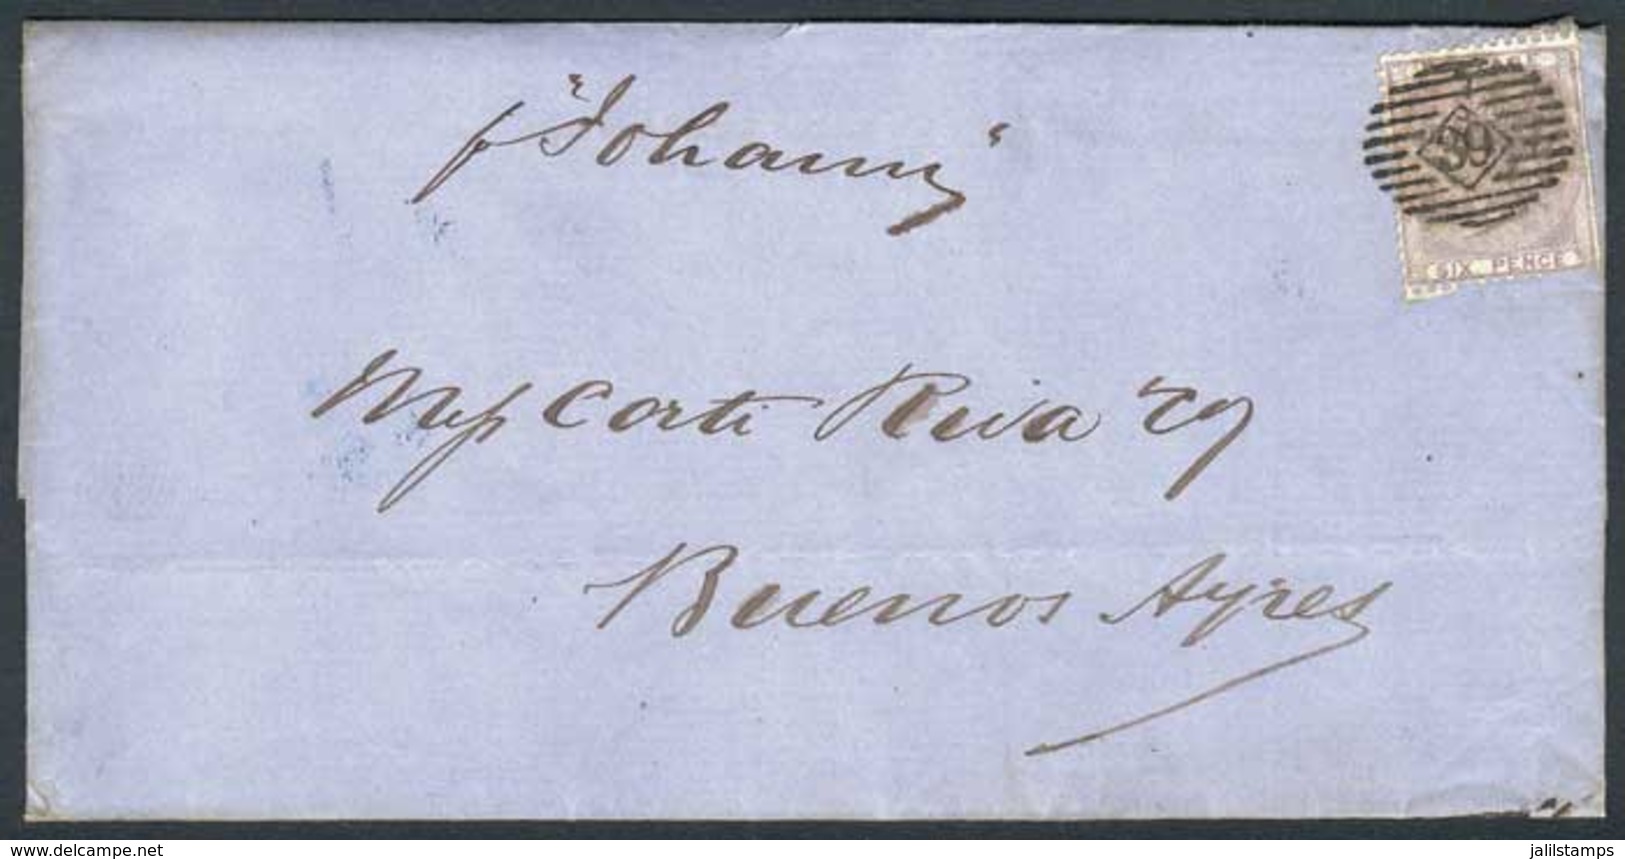 p "Johann"
39
SIX PENCE
Mess Corti Riva Co
Buenos Ayres
www.delcampe.net
jalilstamps